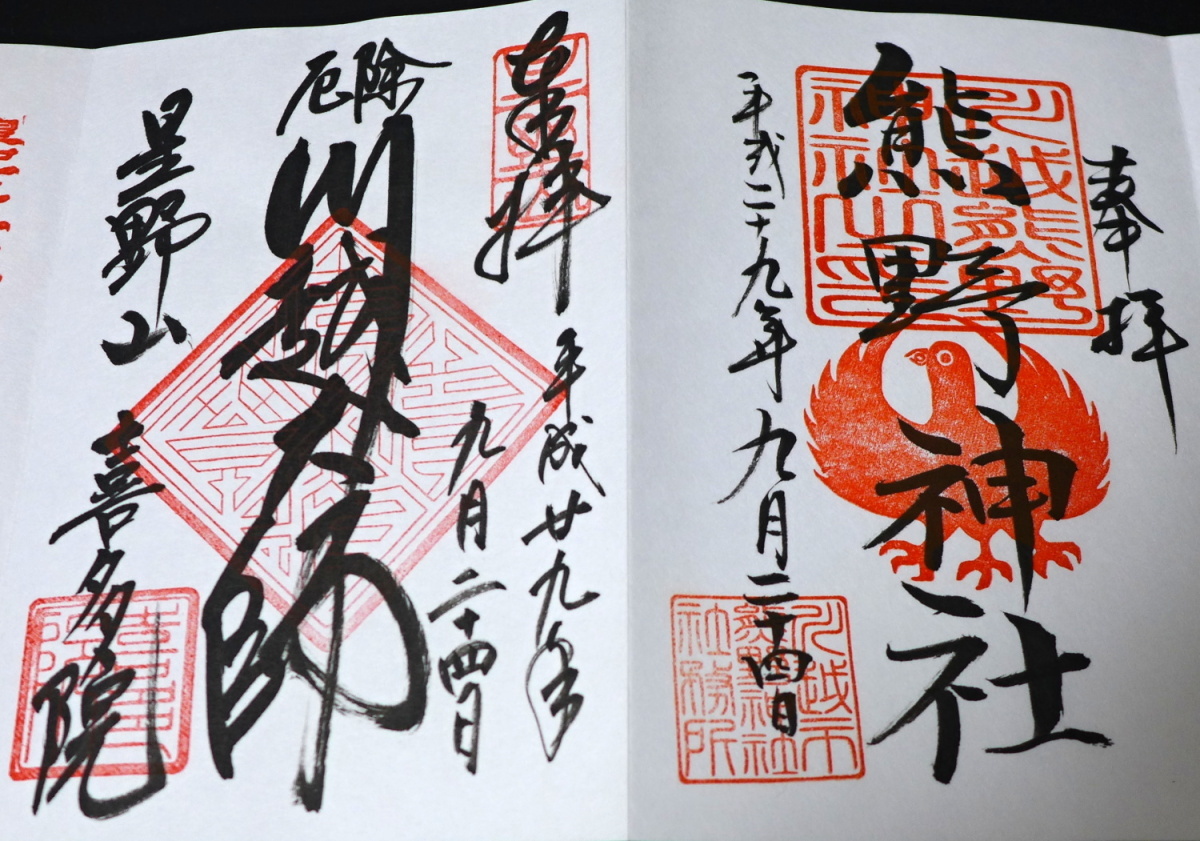 奉拝
熊野神社
平成二十九年九月二十四日
川越熊野
神社之印
川越市
熊野神社
社務所
奉拝
平成廿九年
九月二十四日
厄除
川越大師
星野山
喜多院